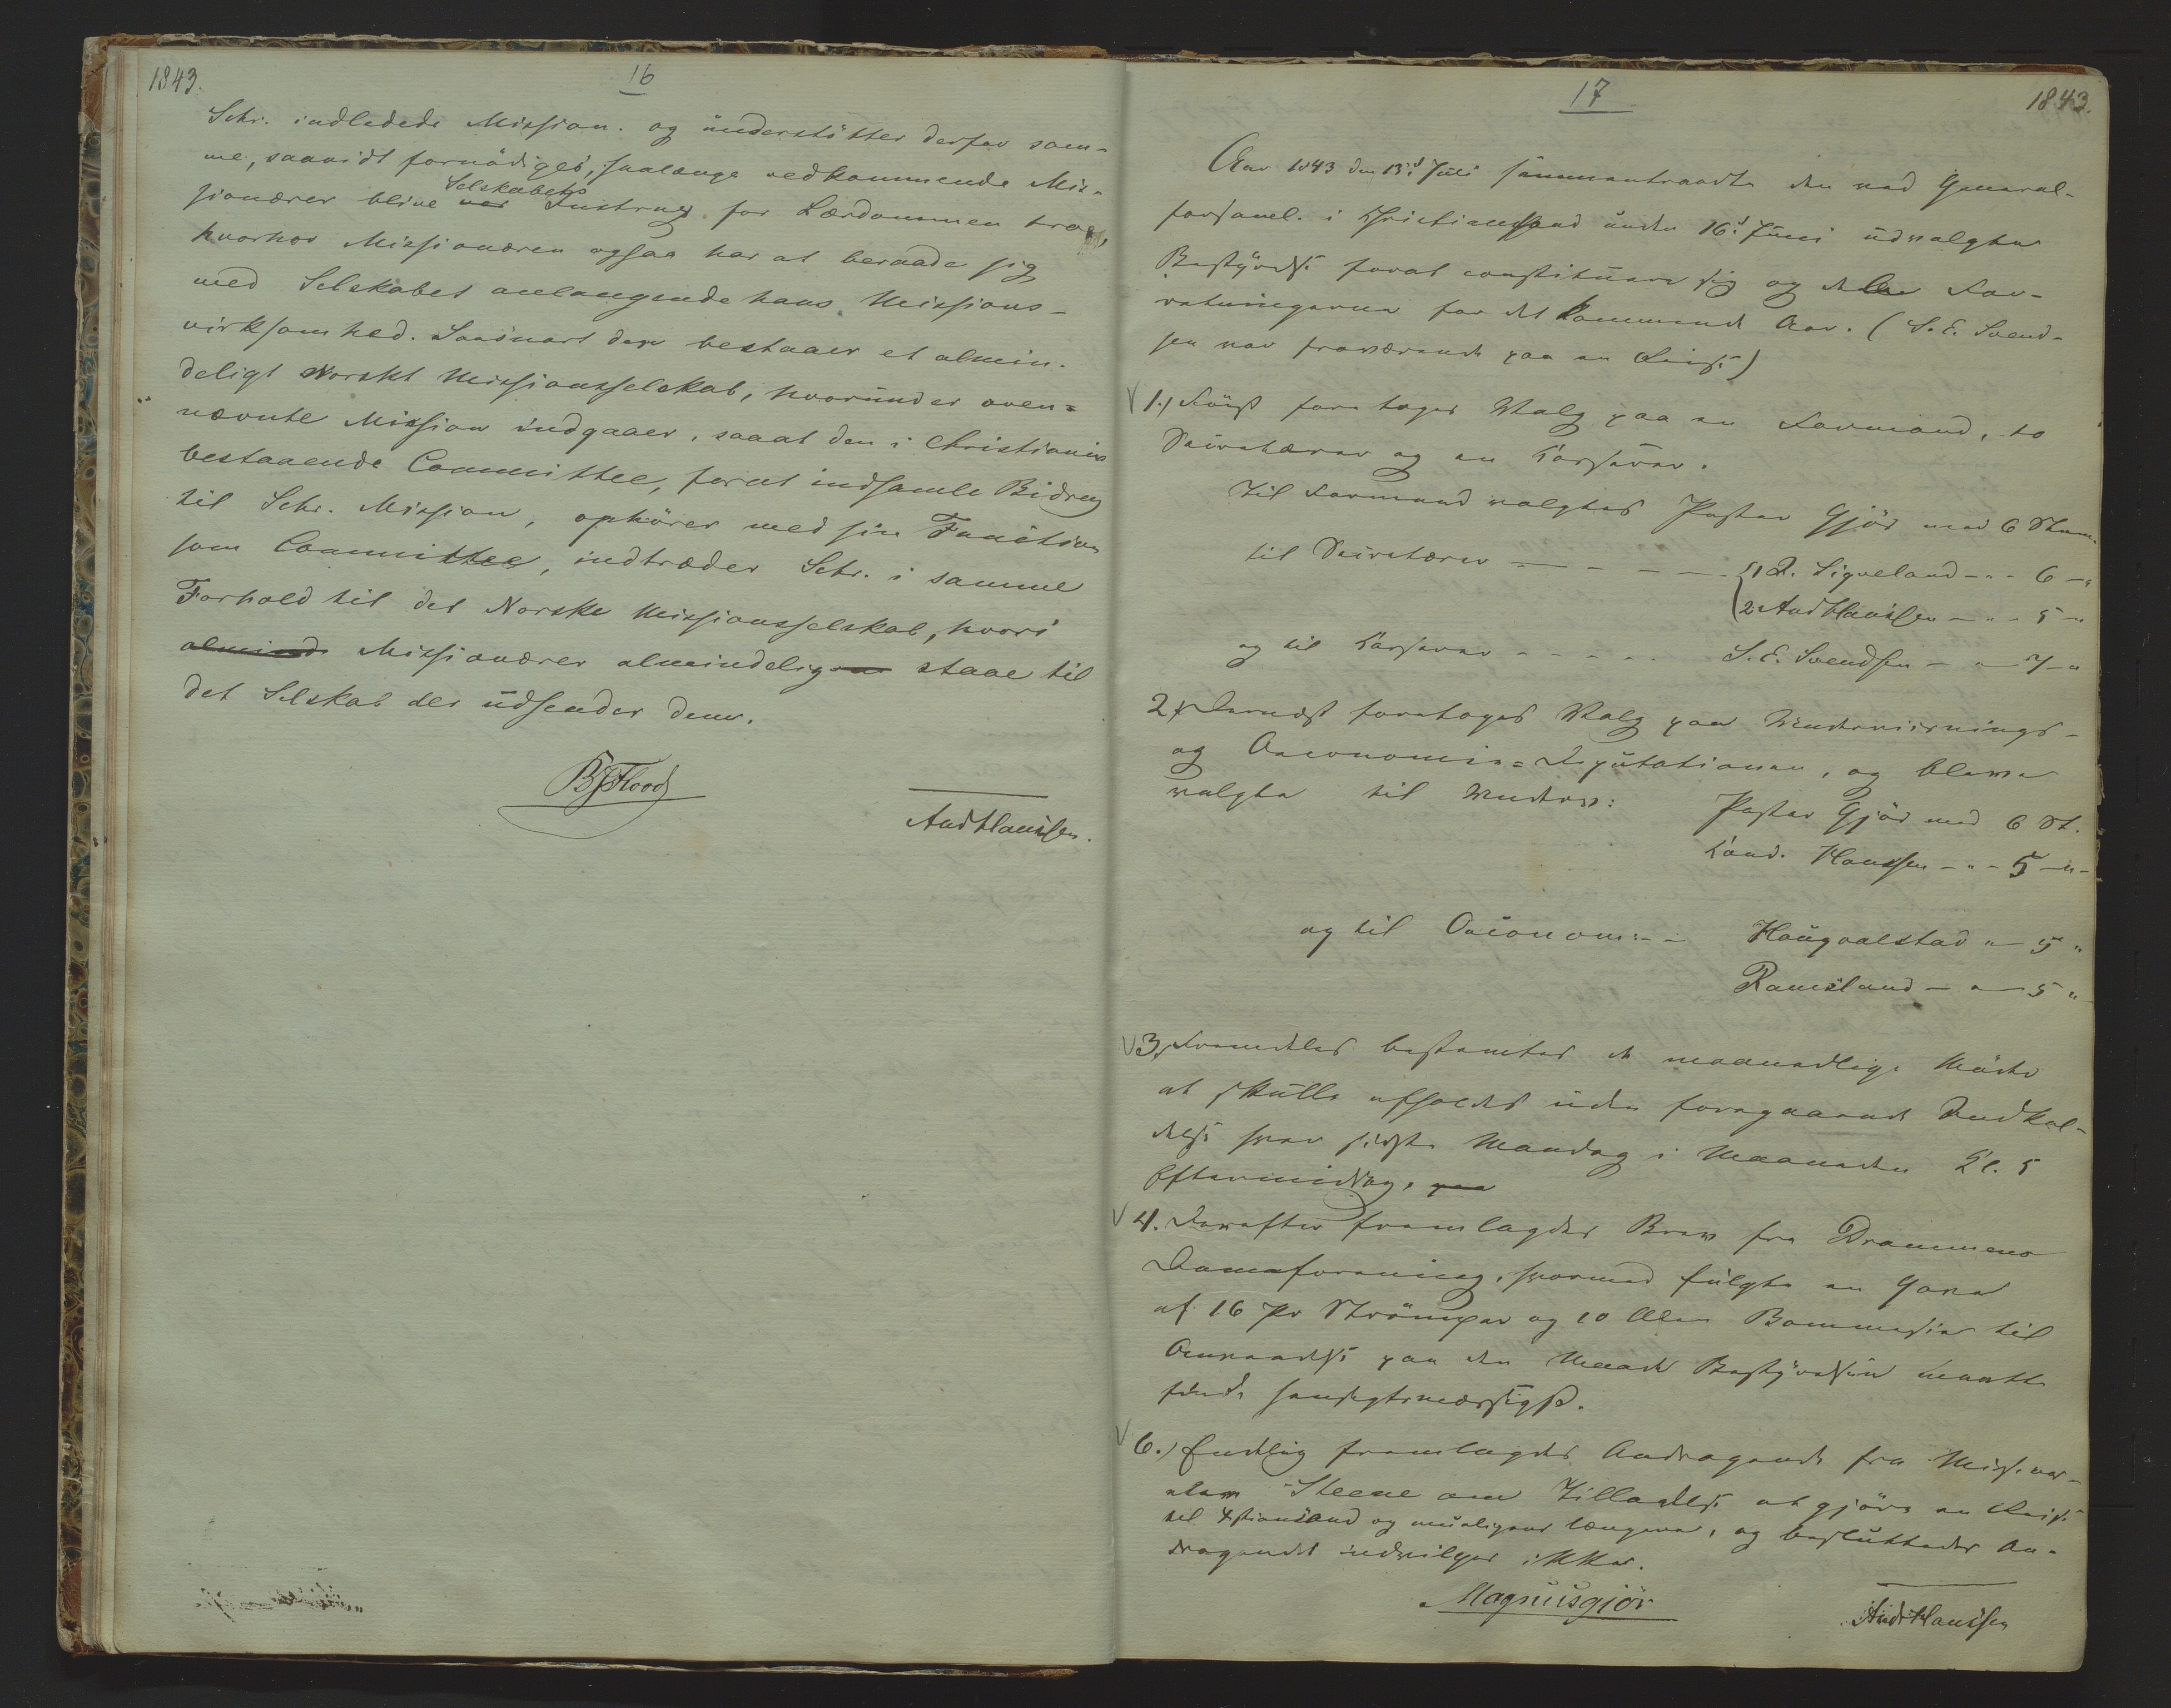 1843.
16
Schr. indledede Mission. og understøtter derfor sam-
me, saavidt fornødiges, saalænge vedkommende Mis-
sionærer blive ved Selskabets Instrux for Lærdommen troe,
hvorhos Missionæren ogsaa har at beraade sig
med Selskabet anlangende hans Missions-
virksomhed. Saasnart der bestaaer et almin-
deligt Norskt Missionsselskab, hvorunder oven-
nævnte Mission indgaaer, saaat den i Christiania
bestaaende Committee, forat indsamle Bidrag
til Schr. Mission, ophører med sin Function
som Committee, indtræder Schr. i samme
Forhold til det Norske Missionsselskab, hvori
almind. Missionærer almindelig staae til
det Selskab der udsender dem.
BJFlood
Andr Haussen.
17
1843.
Aar 1843 den 13d Juli sammentraadte den ved General-
forsaml. i Christianssand under 16d Juni udvalgte
Bestyrelse forat constituere sig og dele For-
retningerne for det kommende Aar. (S. E. Svend-
sen var fraværende paa en Reise)
1.) Først foretoges Valg paa en Formand, to
Secretærer og en Casserer.
Til Formand valgtes Pastor Gjør med 6 Stem.
til Secretærer — — — — 1 L. Sigveland - " - 6 - "
2 And Haussen - " - 5 - "
og til Casserer - - - - - S. E. Svendsen - " - 7 - "
2.) Dernæst foretoges Valg paa Underviisnings-
og Oeconomie-Deputationen, og bleve
valgte til Underv: Pastor Gjør med 6 St.
Cand. Haussen - " - 5 - " -
og til Oeconom: - - Haugvalstad " - 5 "
Ramsland - " - 5 "
3. Fremdeles bestemtes de maanedlige Møder
at skulle afholdes uden foregaaende Indkal-
delse hver sidste Mandag i Maaneden Kl. 5
Eftermiddag, paa
4. Derefter fremlagdes Brev fra Drammens
Dameforening, hvormed fulgte en Gave
af 16 Par Strømper og 10 Alen Bommesie til
Anvendelse paa den Maade Bestyrelsen maatte
finde hensigtsmæssigst.
6.) Endelig fremlagdes Andragende fra Miss.
eleven Steene om Tilladelse at gjøre en Reise
til Xstiansand og mueligens længere, og besluttedes An-
dragendet indvilget ikke.
Magnus Gjör
Andr Haussen